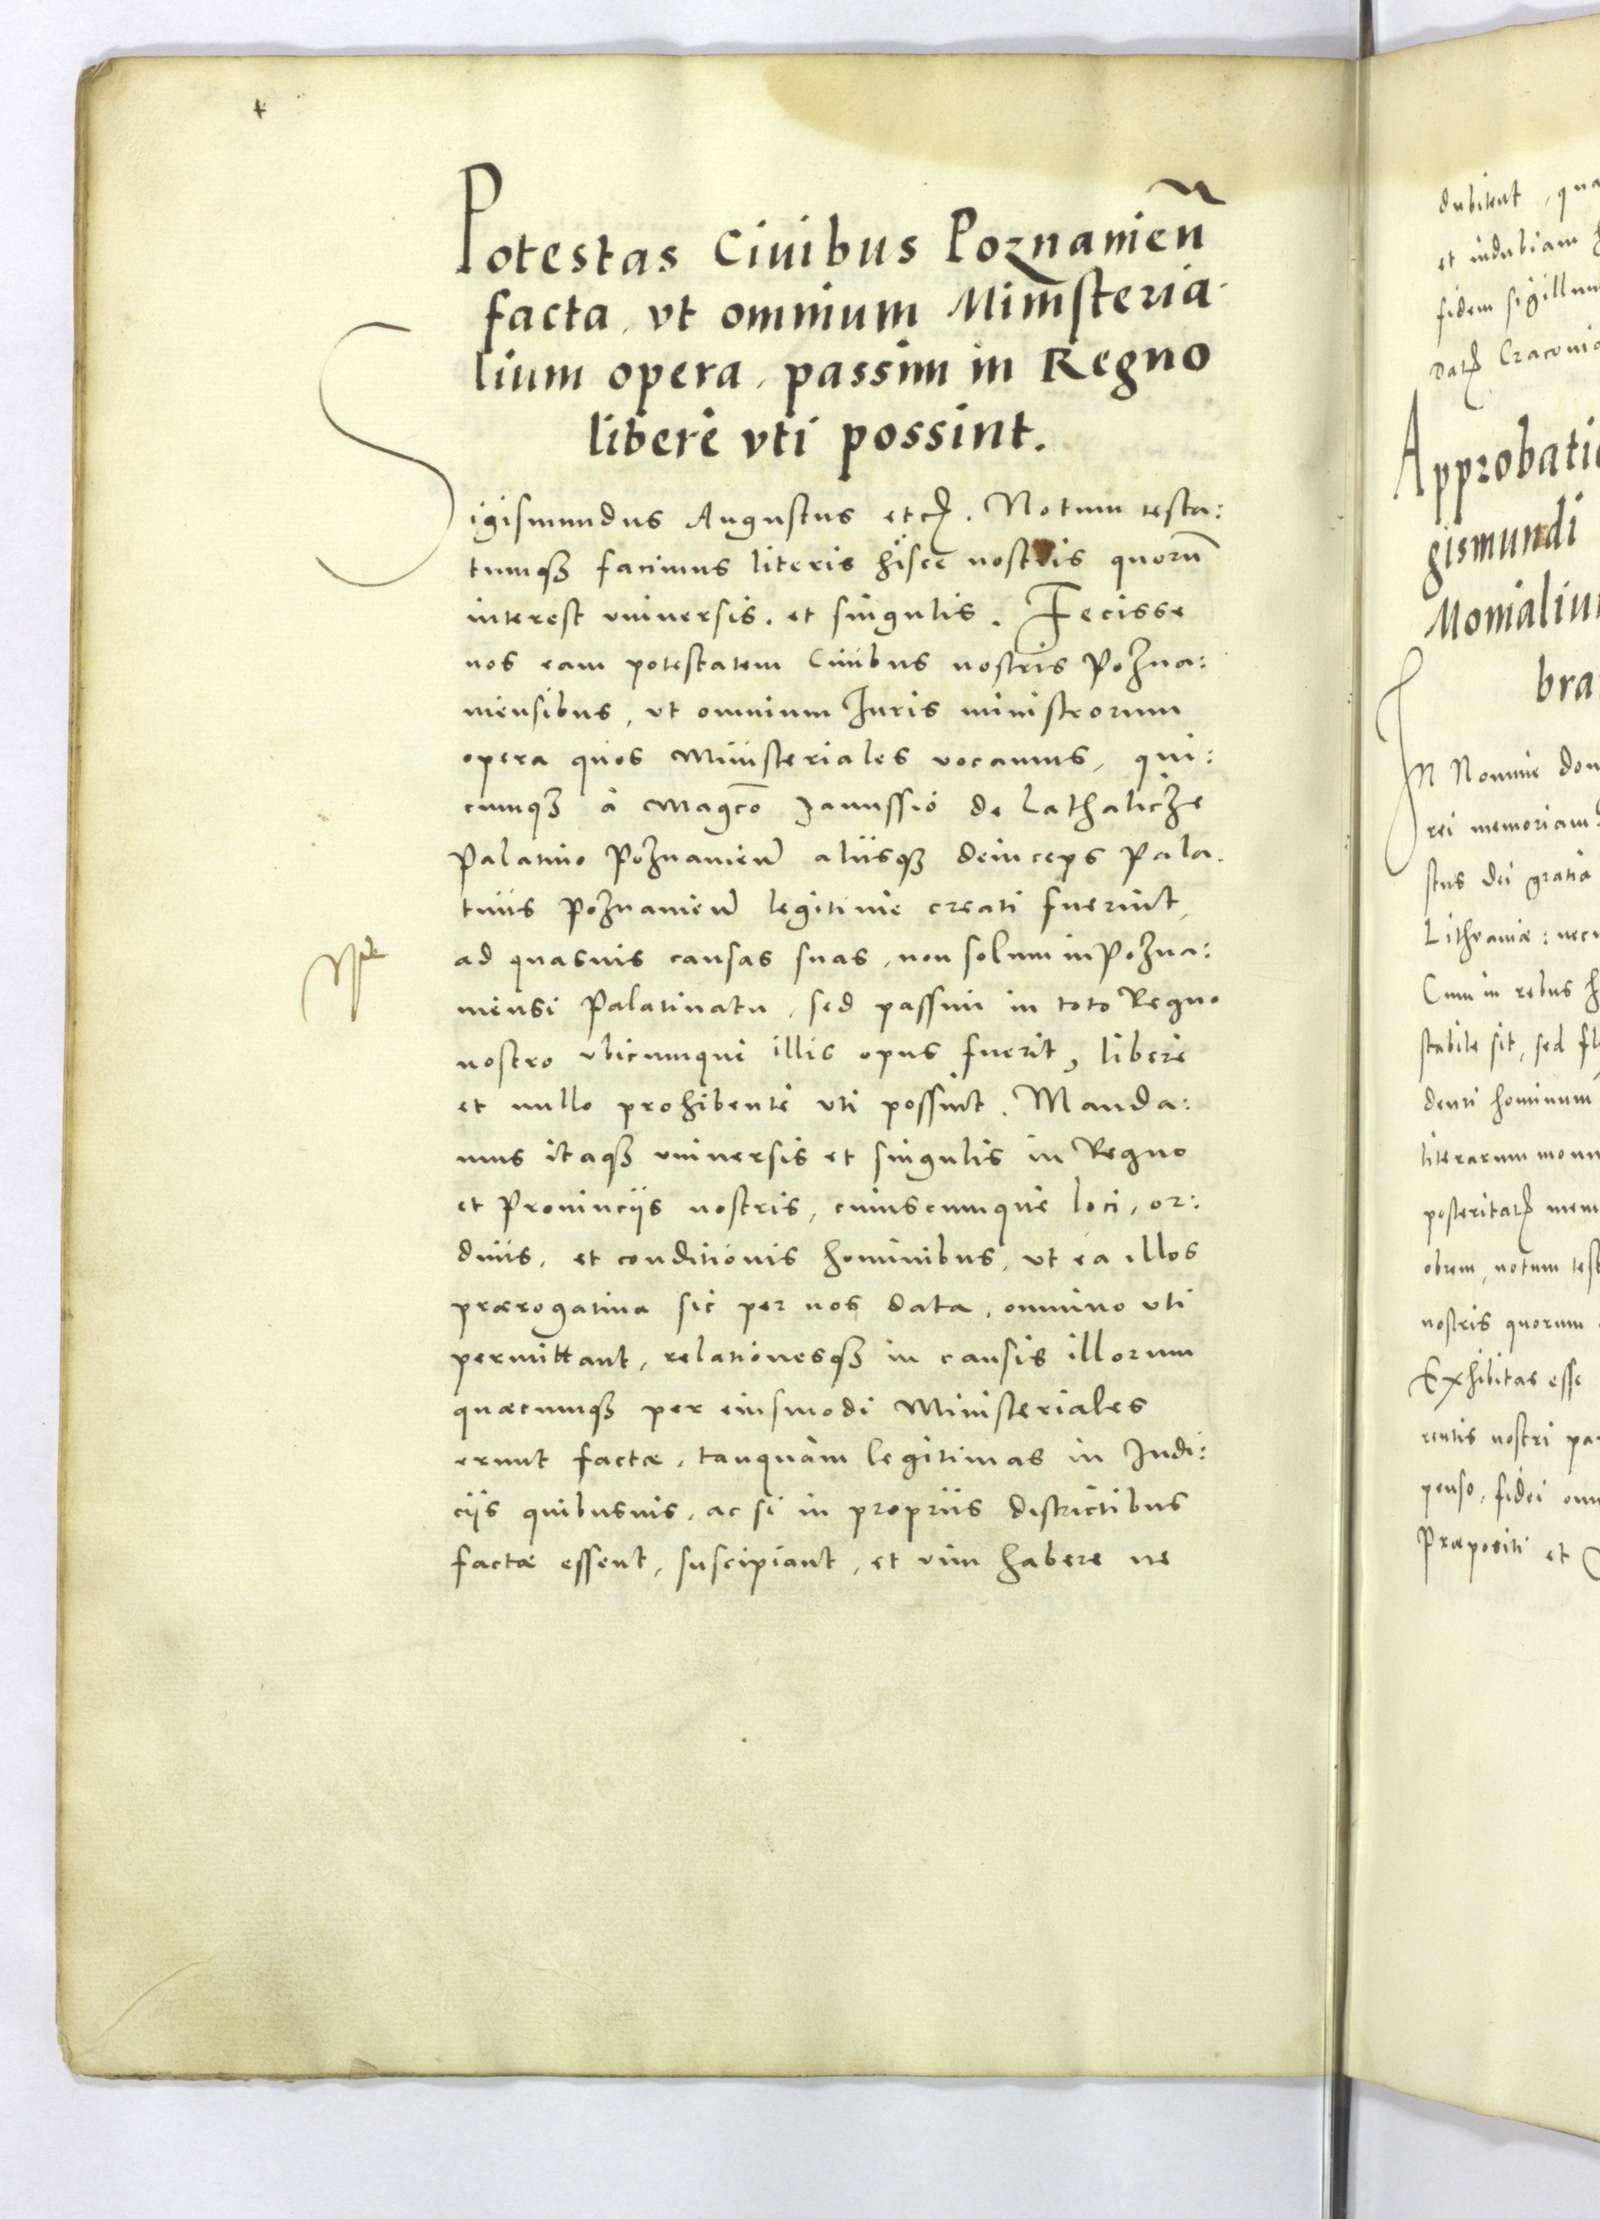 Potestas Ciuibus Poznanień
facta, vt omnium Ministeria-
lium opera, passim in Regno
libere vti possint.
Sigismundus Augustus etc. Notum testa:
tumq3 facimus literis hisce nostris quorū
interest vniuersis, et singulis. Fecisse
nos eam potestatem Ciuibus nostris Pozna:
niensibus, vt omnium Iuris ministrorum
opera quos Ministeriales vocamus, qui:
cumq3 à Magco Janussio de Lathalicze
Palatino Poznanień aliisq3 deinceps Pala-
tinis Poznanień legitime creati fuerint,
ad quasuis causas suas, non solum in Pozna:
niensi Palatinatu, sed passim in toto Regno
nostro vbicumque illis opus fuerit, libere
et nullo prohibente vti possint. Manda:
mus itaq3 vniuersis et singulis in Regno
et Prouinciis nostris, cuiuscumque loci, or:
dinis, et conditionis hominibus, vt ea illos
prærogatiua sic per nos data, omnino vti
permittant, relationesq3 in causis illorum
quæcumq3 per eiusmodi Ministeriales
erunt factæ, tanquam legitimas in Iudi:
ciis quibusuis, ac si in propriis districtibus
factæ essent, suscipiant, et vim habere ne
dubitent, qua
et indubiam
fidem sigillum
Dat Cracouia
Approbatio
gismundi
Monialium
bra
In Nomine dom
rei memoriam
stus dei gratia
Lithvaniæ: nec
Cum in rebus h
stabile sit, sed fl
denti hominum
literarum monu
posteritat mem
obrem, notum test
nostris quorum
Exhibitas esse
rentis nostri pa
penso, fidei om
Præpositi et